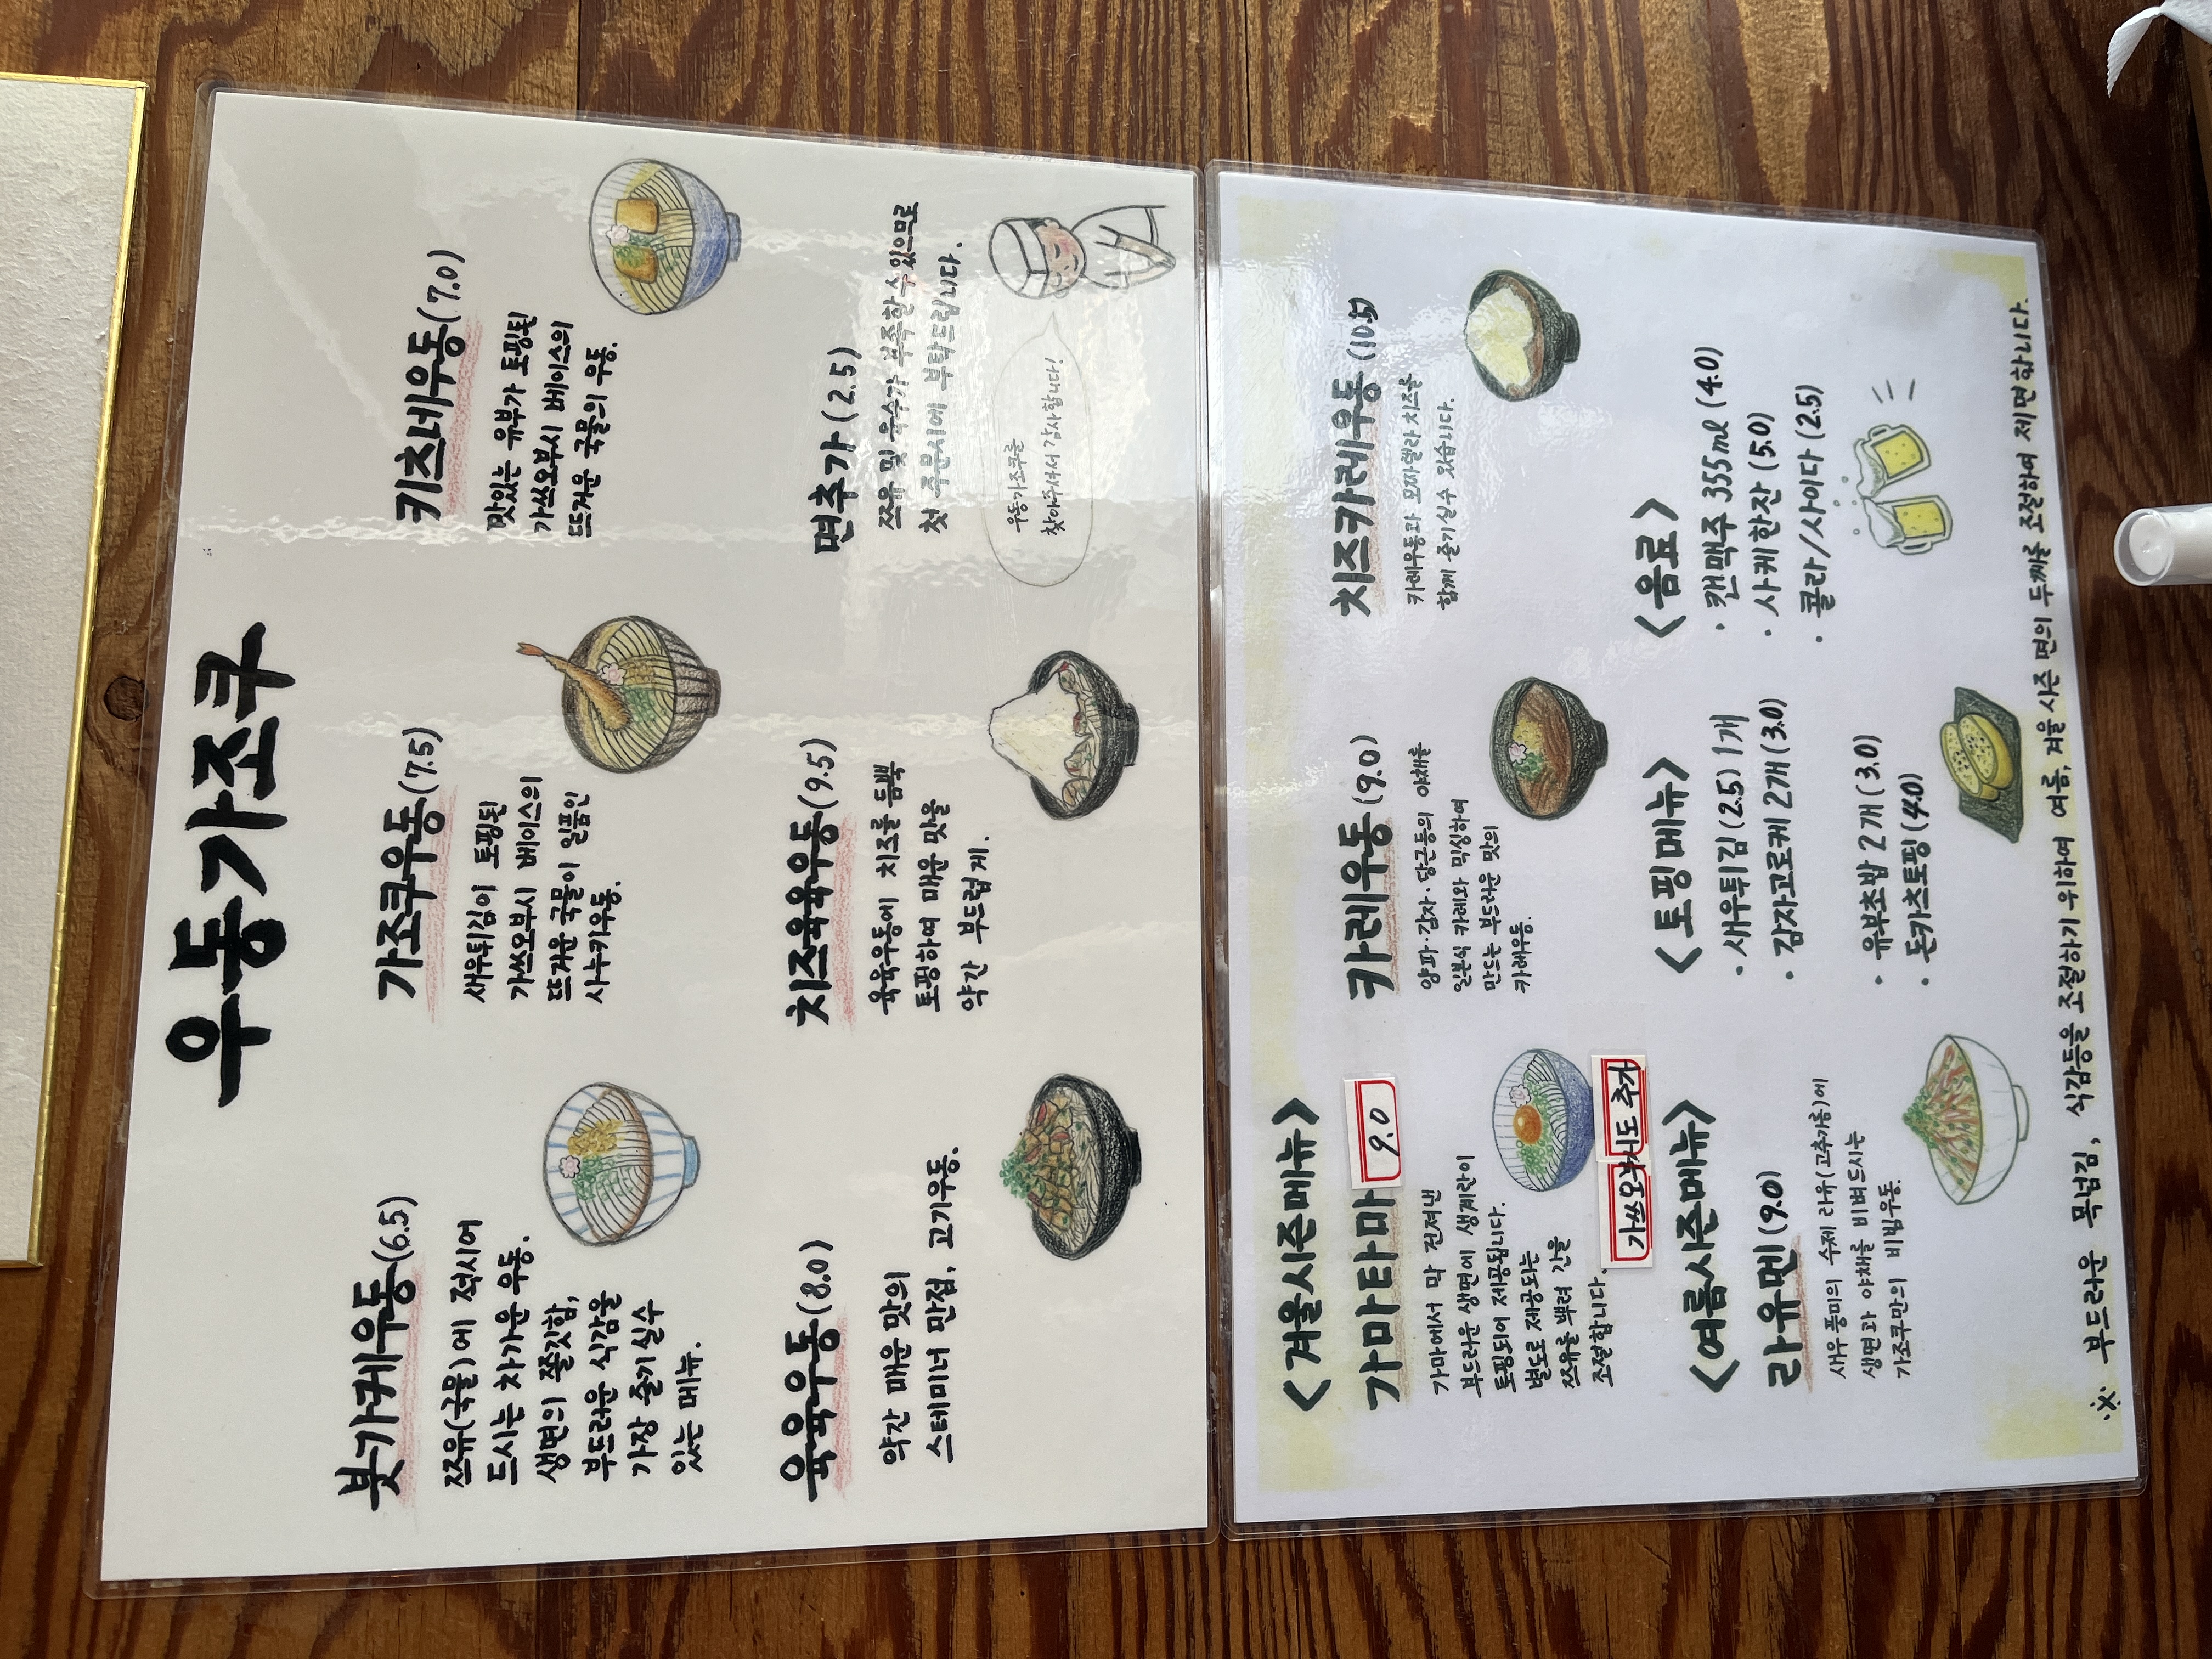 우동가조쿠
붓가케우동(6.5)
쯔유(국물)에 적시어
드시는 차가운 우동.
생면의 쫄깃함,
부드러운 식감을
가장 즐기실수
있는 메뉴.
가조쿠우동(7.5)
새우튀김이 토핑된
가쓰오부시 베이스의
뜨거운 국물이 일품인
사누키우동.
키츠네우동(7.0)
맛있는 유부가 토핑된
가쓰오부시 베이스의
뜨거운 국물의 우동.
육육우동(8.0)
약간 매운 맛의
스테미너 만점, 고기우동.
치즈육육우동(9.5)
육육우동에 치즈를 듬뿍
토핑하여 매운 맛을
약간 부드럽게.
면추가 (2.5)
쯔유 및 육수가 부족할 수 있으므로
첫 주문시에 부탁드립니다.
우동가조쿠를
찾아주셔서 감사합니다!
<겨울시즌메뉴>
가마타마 9.0
가마에서 막 건져낸
부드러운 생면에 생계란이
토핑되어 제공됩니다.
별도로 제공되는
쯔유를 뿌려 간을
조절합니다.
가쓰오부시도 추가
카레우동(9.0)
양파·감자·당근등의 야채를
일본식 카레와 믹싱하여
만드는 부드러운 맛의
카레우동.
치즈카레우동 (10.5)
카레우동과 모짜렐라 치즈를
함께 즐기실수 있습니다.
<여름시즌메뉴>
라유멘(9.0)
새우 풍미의 수제 라유(고추기름)에
생면과 야채를 비벼드시는
가조쿠만의 비빔우동.
<토핑메뉴>
· 새우튀김(2.5) 1개
· 감자고로케 2개(3.0)
· 유부초밥 2개(3.0)
· 돈카츠토핑(4.0)
<음료>
· 캔맥주 355ml (4.0)
· 사케한잔 (5.0)
· 콜라/사이다 (2.5)
※ 부드러운 목넘김, 식감등을 조절하기 위하여 여름, 겨울 시즌 면의 두께를 조절하여 제면합니다.